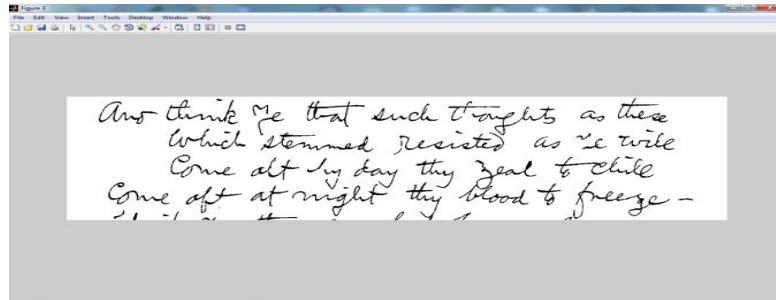 Figure 3
File Edit View Insert Tools Desktop Window Help
And think ye that such thoughts as these
Which stemmed resisted as ye will
Come oft by day thy zeal to chill
Come oft at night thy blood to freeze -